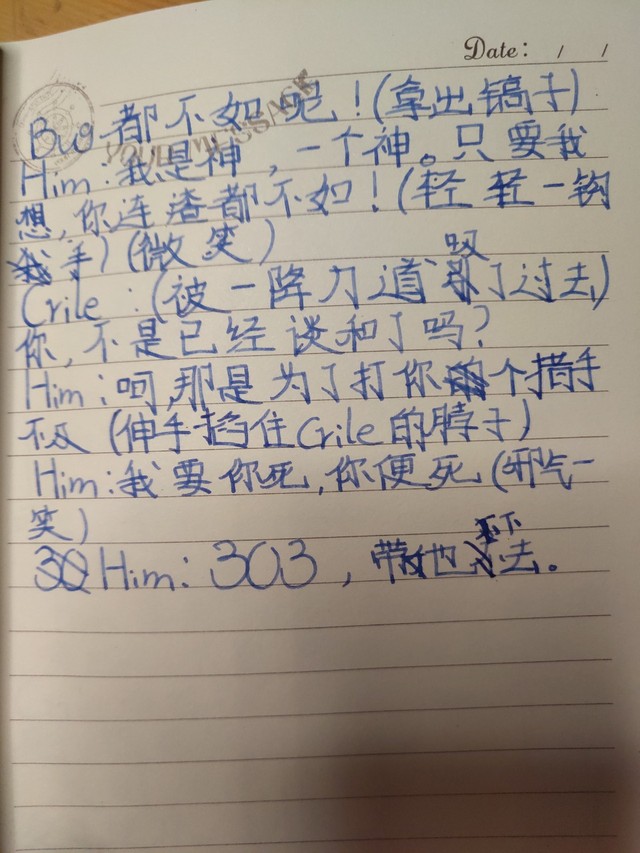 Date: / /
YOUR MESSAGE
Bug都不如呢！(拿出镐子)
Him：我是神，一个神。只要我
想，你连渣都不如！(轻轻一钩
手)(微笑)
Crile：(被一降力道吸了过去)
你，不是已经谈和了吗？
Him：呵,那是为了打你个措手
不及(伸手掐住Crile的脖子)
Him：我要你死,你便死(邪气一
笑)
Him：303，带他下去。